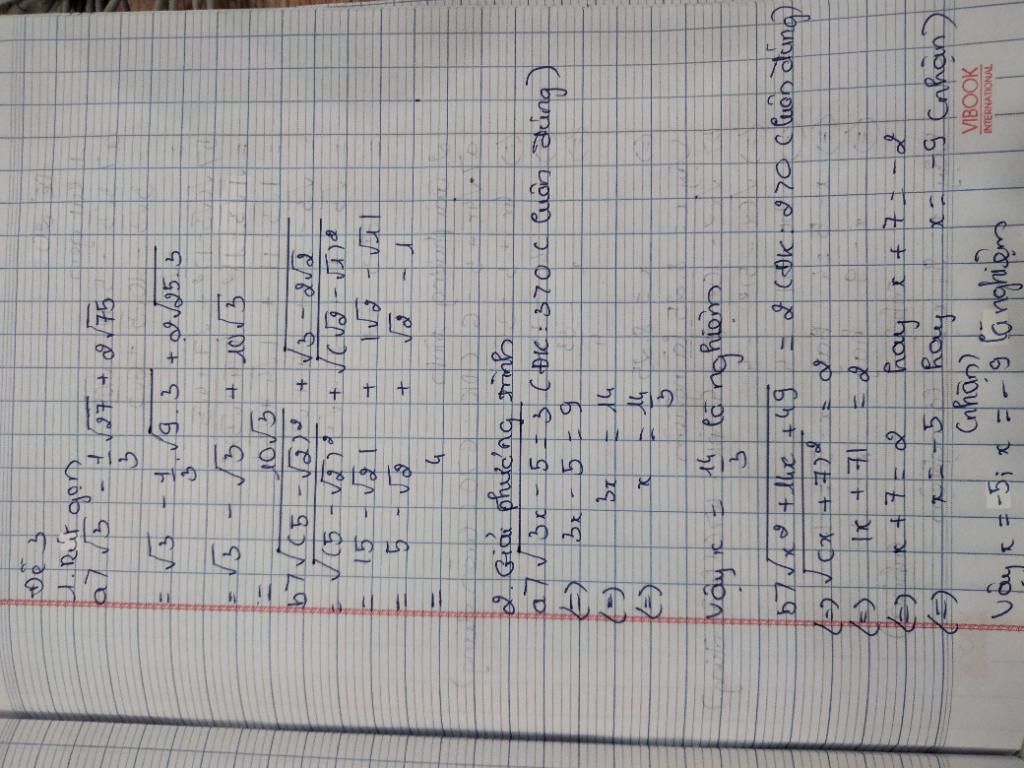 Đề 3
1. Rút gọn
a7 √3 - 1/3 √27 + 2√75
= √3 - 1/3 √9.3 + 2√25.3
= √3 - √3 + 10√3
= 10√3
b7 √(5 - √2)² + √3 - 2√2
= √(5 - √2)² + √(√2 - √1)²
= |5 - √2| + |√2 - √1|
= 5 - √2 + √2 - 1
= 4
2. Giải phương trình
a7 √3x - 5 = 3 (ĐK: 3>0 (luôn đúng)
(=) 3x - 5 = 9
(=) 3x = 14
(=) x = 14/3
Vậy x = 14/3 là nghiệm
b7 √x² + 14x + 49 = 2 (ĐK: 2>0 (luôn đúng)
(=) √(x + 7)² = 2
(=) |x + 7| = 2
(=) x + 7 = 2 hay x + 7 = -2
(=) x = -5 hay x = -9 (nhận)
(nhận)
Vậy x = -5; x = -9 là nghiệm
VIBOOK
INTERNATIONAL